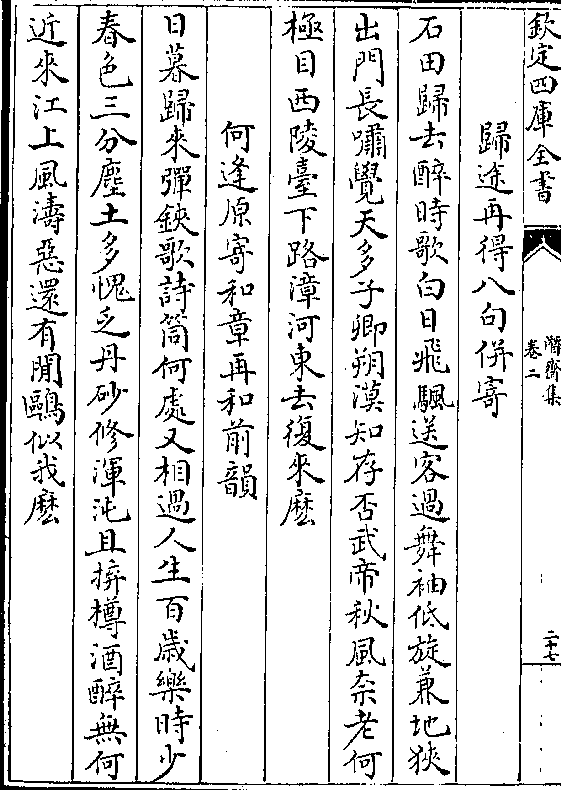 欽定四庫全書
潛齋集
卷二
二十七
歸途再得八句併寄
石田歸去醉時歌白日飛颿送客過舞袖低旋兼地狹
出門長嘯覺天多子卿朔漠知存否武帝秋風柰老何
極目西陵臺下路漳河東去復來麽
何逢原寄和章再和前韻
日暮歸來彈鋏歌詩筒何處又相過人生百歲樂時少
春色三分塵土多愧乏丹砂修渾沌且拚樽酒醉無何
近來江上風濤惡還有閒鷗似我麽